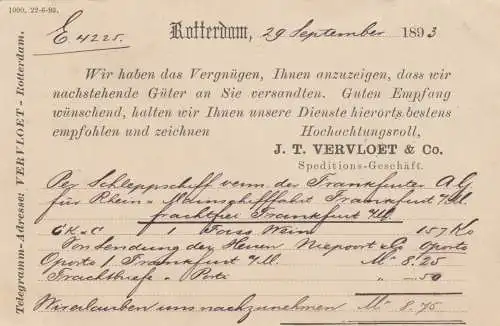 1000, 22-6-93.
E. 4225.
Rotterdam, 29 September 1893
Wir haben das Vergnügen, Ihnen anzuzeigen, dass wir
nachstehende Güter an Sie versandten. Guten Empfang
wünschend, halten wir Ihnen unsere Dienste hierorts bestens
empfohlen und zeichnen Hochachtungsvoll,
J. T. VERVLOET & Co.
Speditions-Geschäft.
Telegramm-Adresse: VERVLOET - Rotterdam.
Per Schleppschiff der Frankfurter A G
für Rhein- & Mainschifffahrt Frankfurt a/M.
frachtfrei Frankfurt a/M.
1 Fass Wein 157 Ko
Von Sendung der Herren Niepoort & Co Oporto
Oporto 1. Frankfurt a/M. M 8.25
Frachtbriefe & Porti " -50
Wir erlauben uns nachzunehmen M 8.75